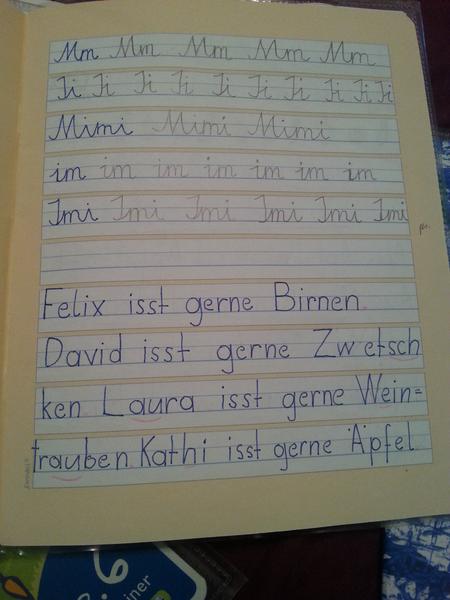 Mm Mm Mm Mm Mm
Ii Ii Ii Ii Ii Ii Ii Ii Ii Ii
Mimi Mimi Mimi
im im im im im im im
Imi Imi Imi Imi Imi Imi
Felix isst gerne Birnen.
David isst gerne Zwetsch
ken Laura isst gerne Wein=
trauben. Kathi isst gerne Äpfel
iner